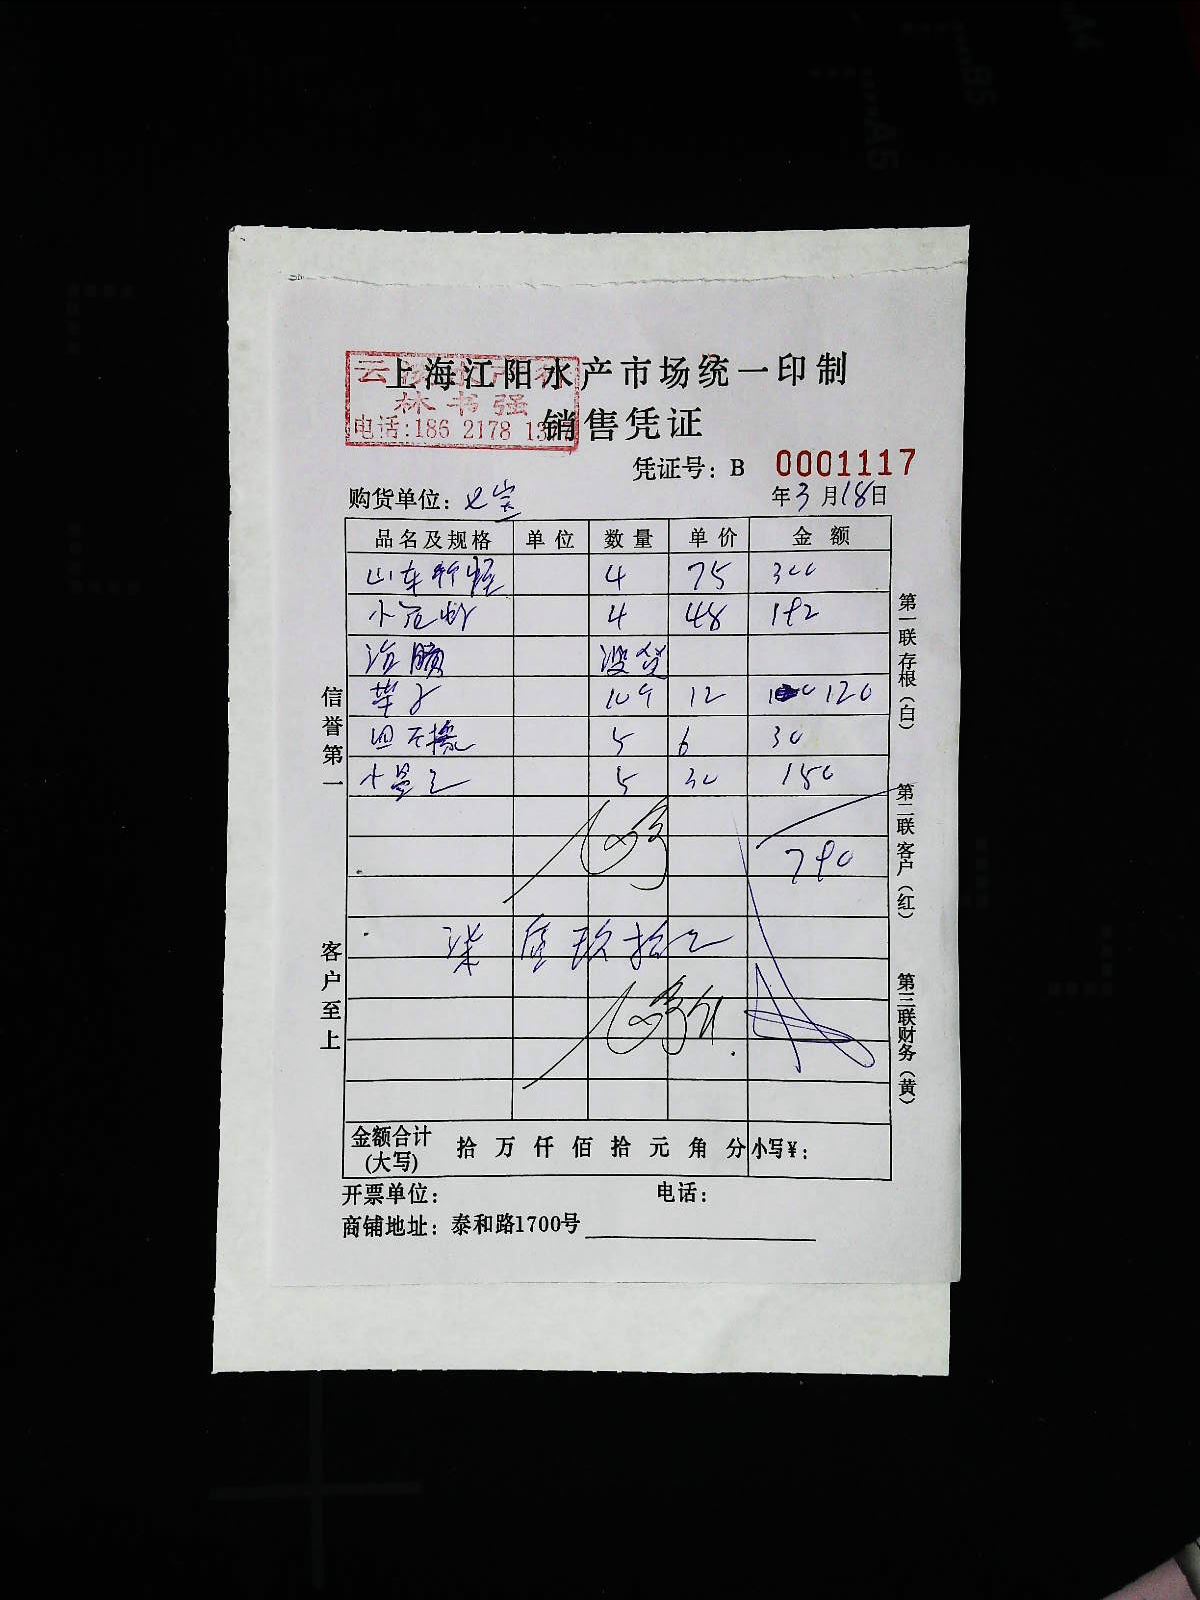 上海江阳水产市场统一印制
云
林书强
销售凭证
电话:186 2178 13
凭证号: B 0001117
购货单位: 七宝
年3月18日
品名及规格 单位 数量 单价 金额
山东 4 75 300
小 4 48 192
没货
10个 12 120
5 6 30
小 5 30 150
790
柒佰玖拾元
金额合计(大写) 拾 万 仟 佰 拾 元 角 分 小写¥:
开票单位: 电话:
商铺地址: 泰和路1700号
信誉第一
客户至上
第一联 存根(白)
第二联 客户(红)
第三联 财务(黄)
A4
B5
A5